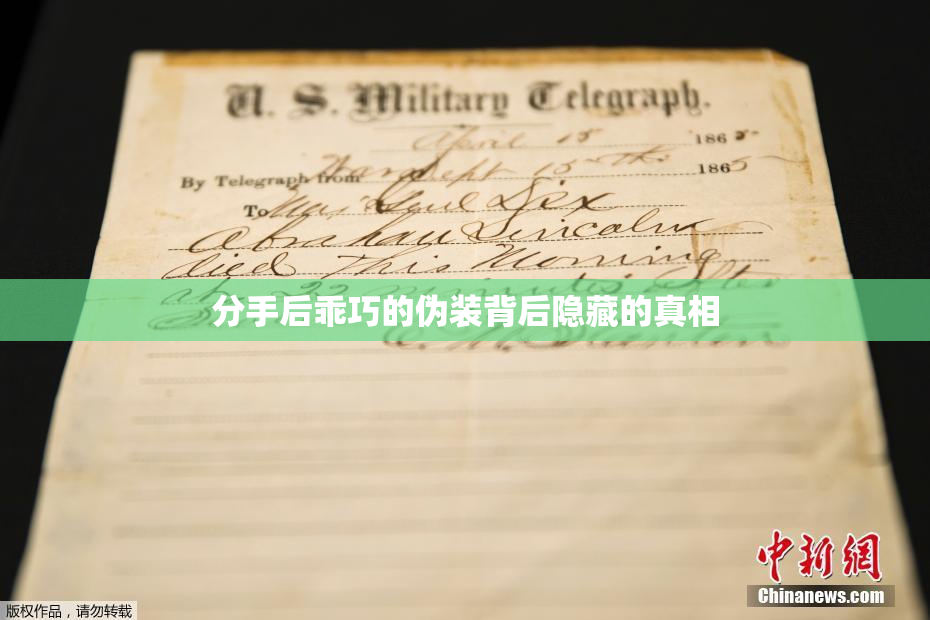 U. S. Military Telegraph.
April 15 1865
By Telegraph from War Dept 15th 1865
To Maj Genl Dix
Abraham Lincoln
died This Morning
at 22 minutes after
分手后乖巧的伪装背后隐藏的真相
中新网
Chinanews.com
版权作品，请勿转载